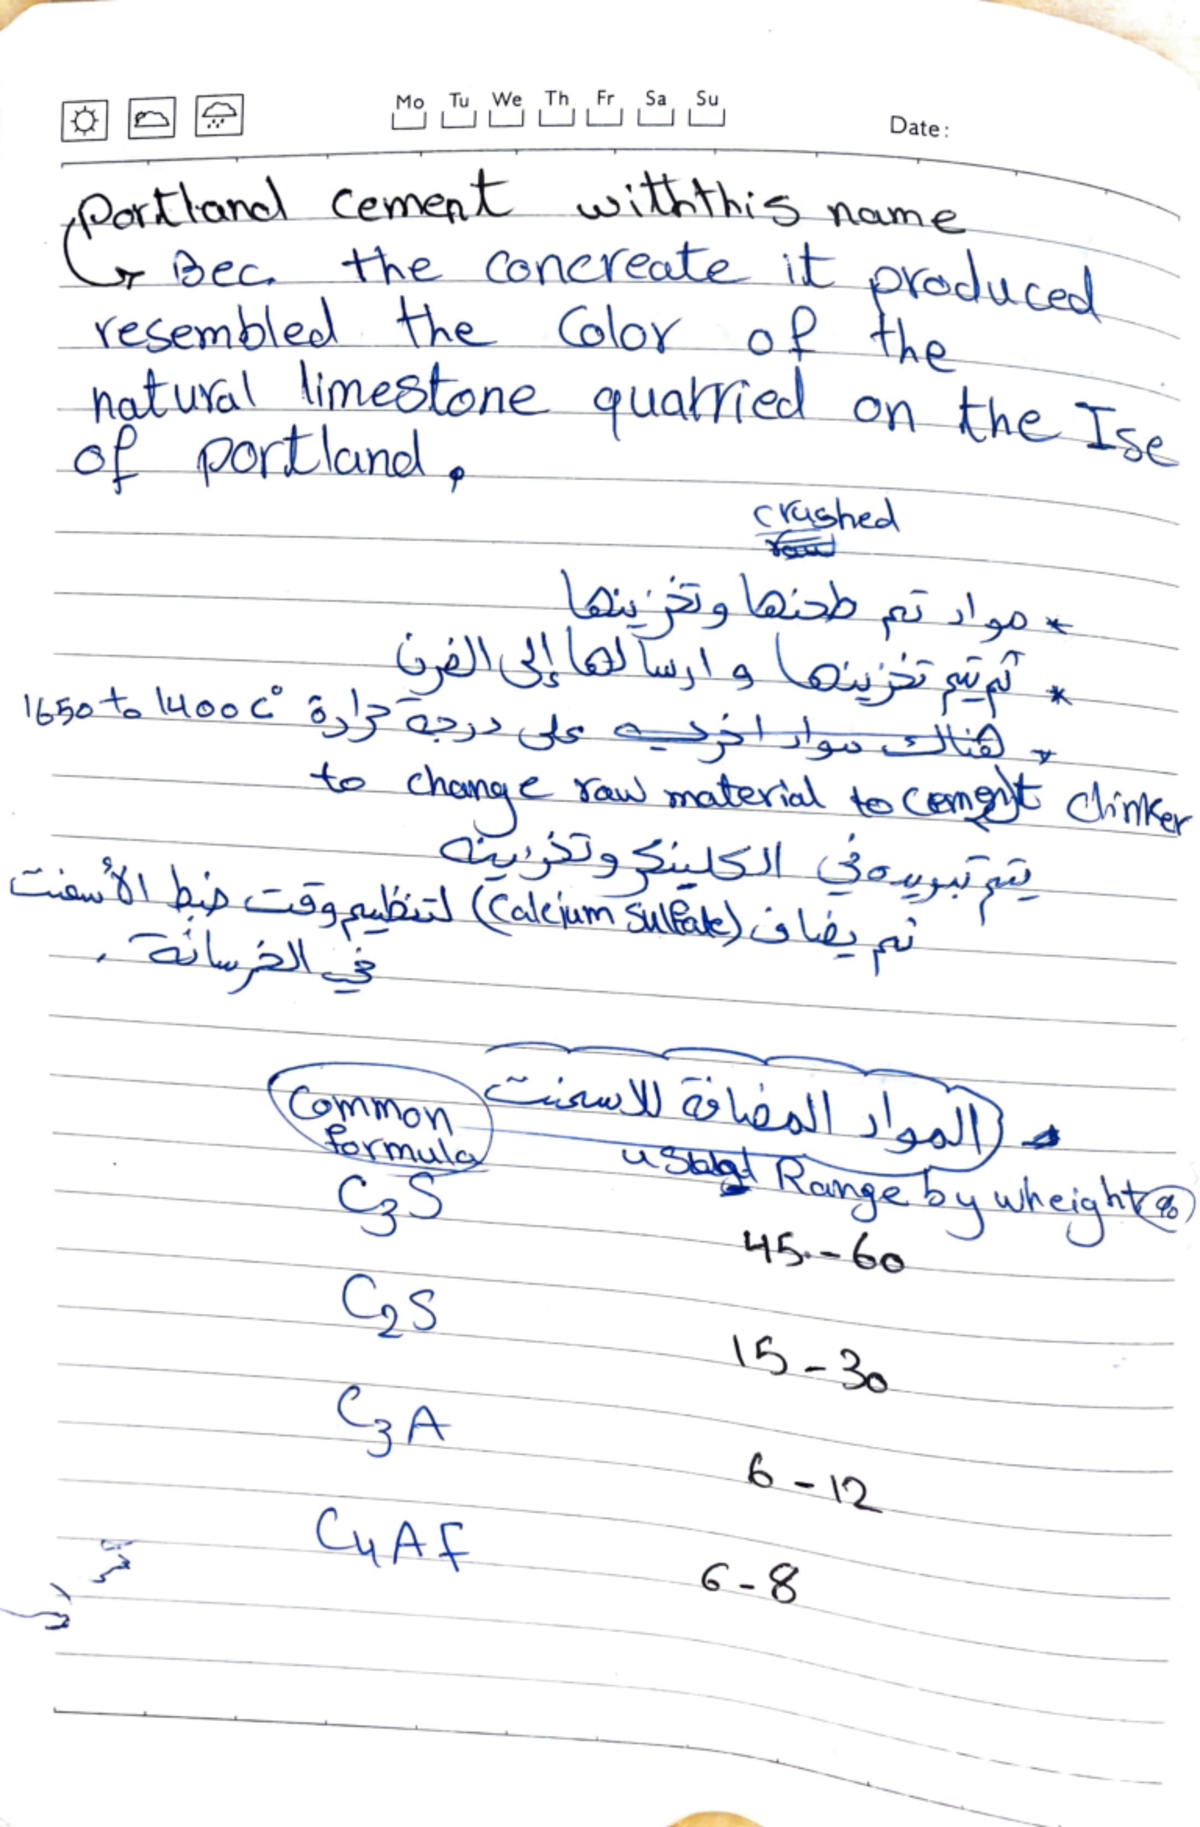 Mo Tu We Th Fr Sa Su
Date:
portland cement withthis name
Bec. the concreate it produced
resembled the Color of the
natural limestone quarried on the Ise
of portland.
crushed
* مواد تم طحنها وتخزينها
* ثم يتم تخزينها وارسالها إلى الفرن
* هناك مواد اخرى على درجة حرارة 1650 to 1400 C°
to change raw material to cement clinker
يتم تبريده في الكلينكر وتخزينه
ثم يضاف (Calcium Sulfate) لتنظيم وقت ضبط الأسمنت
في الخرسانة.
المواد المضافة للاسمنت
Common
formula
usual Range by wheight %
C3S
45-60
C2S
15-30
C3A
6-12
C4AF
6-8